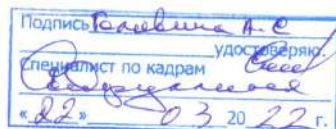 Подпись Головина А.С
удостоверяю.
Специалист по кадрам
« 22 » 03 20 22 г.